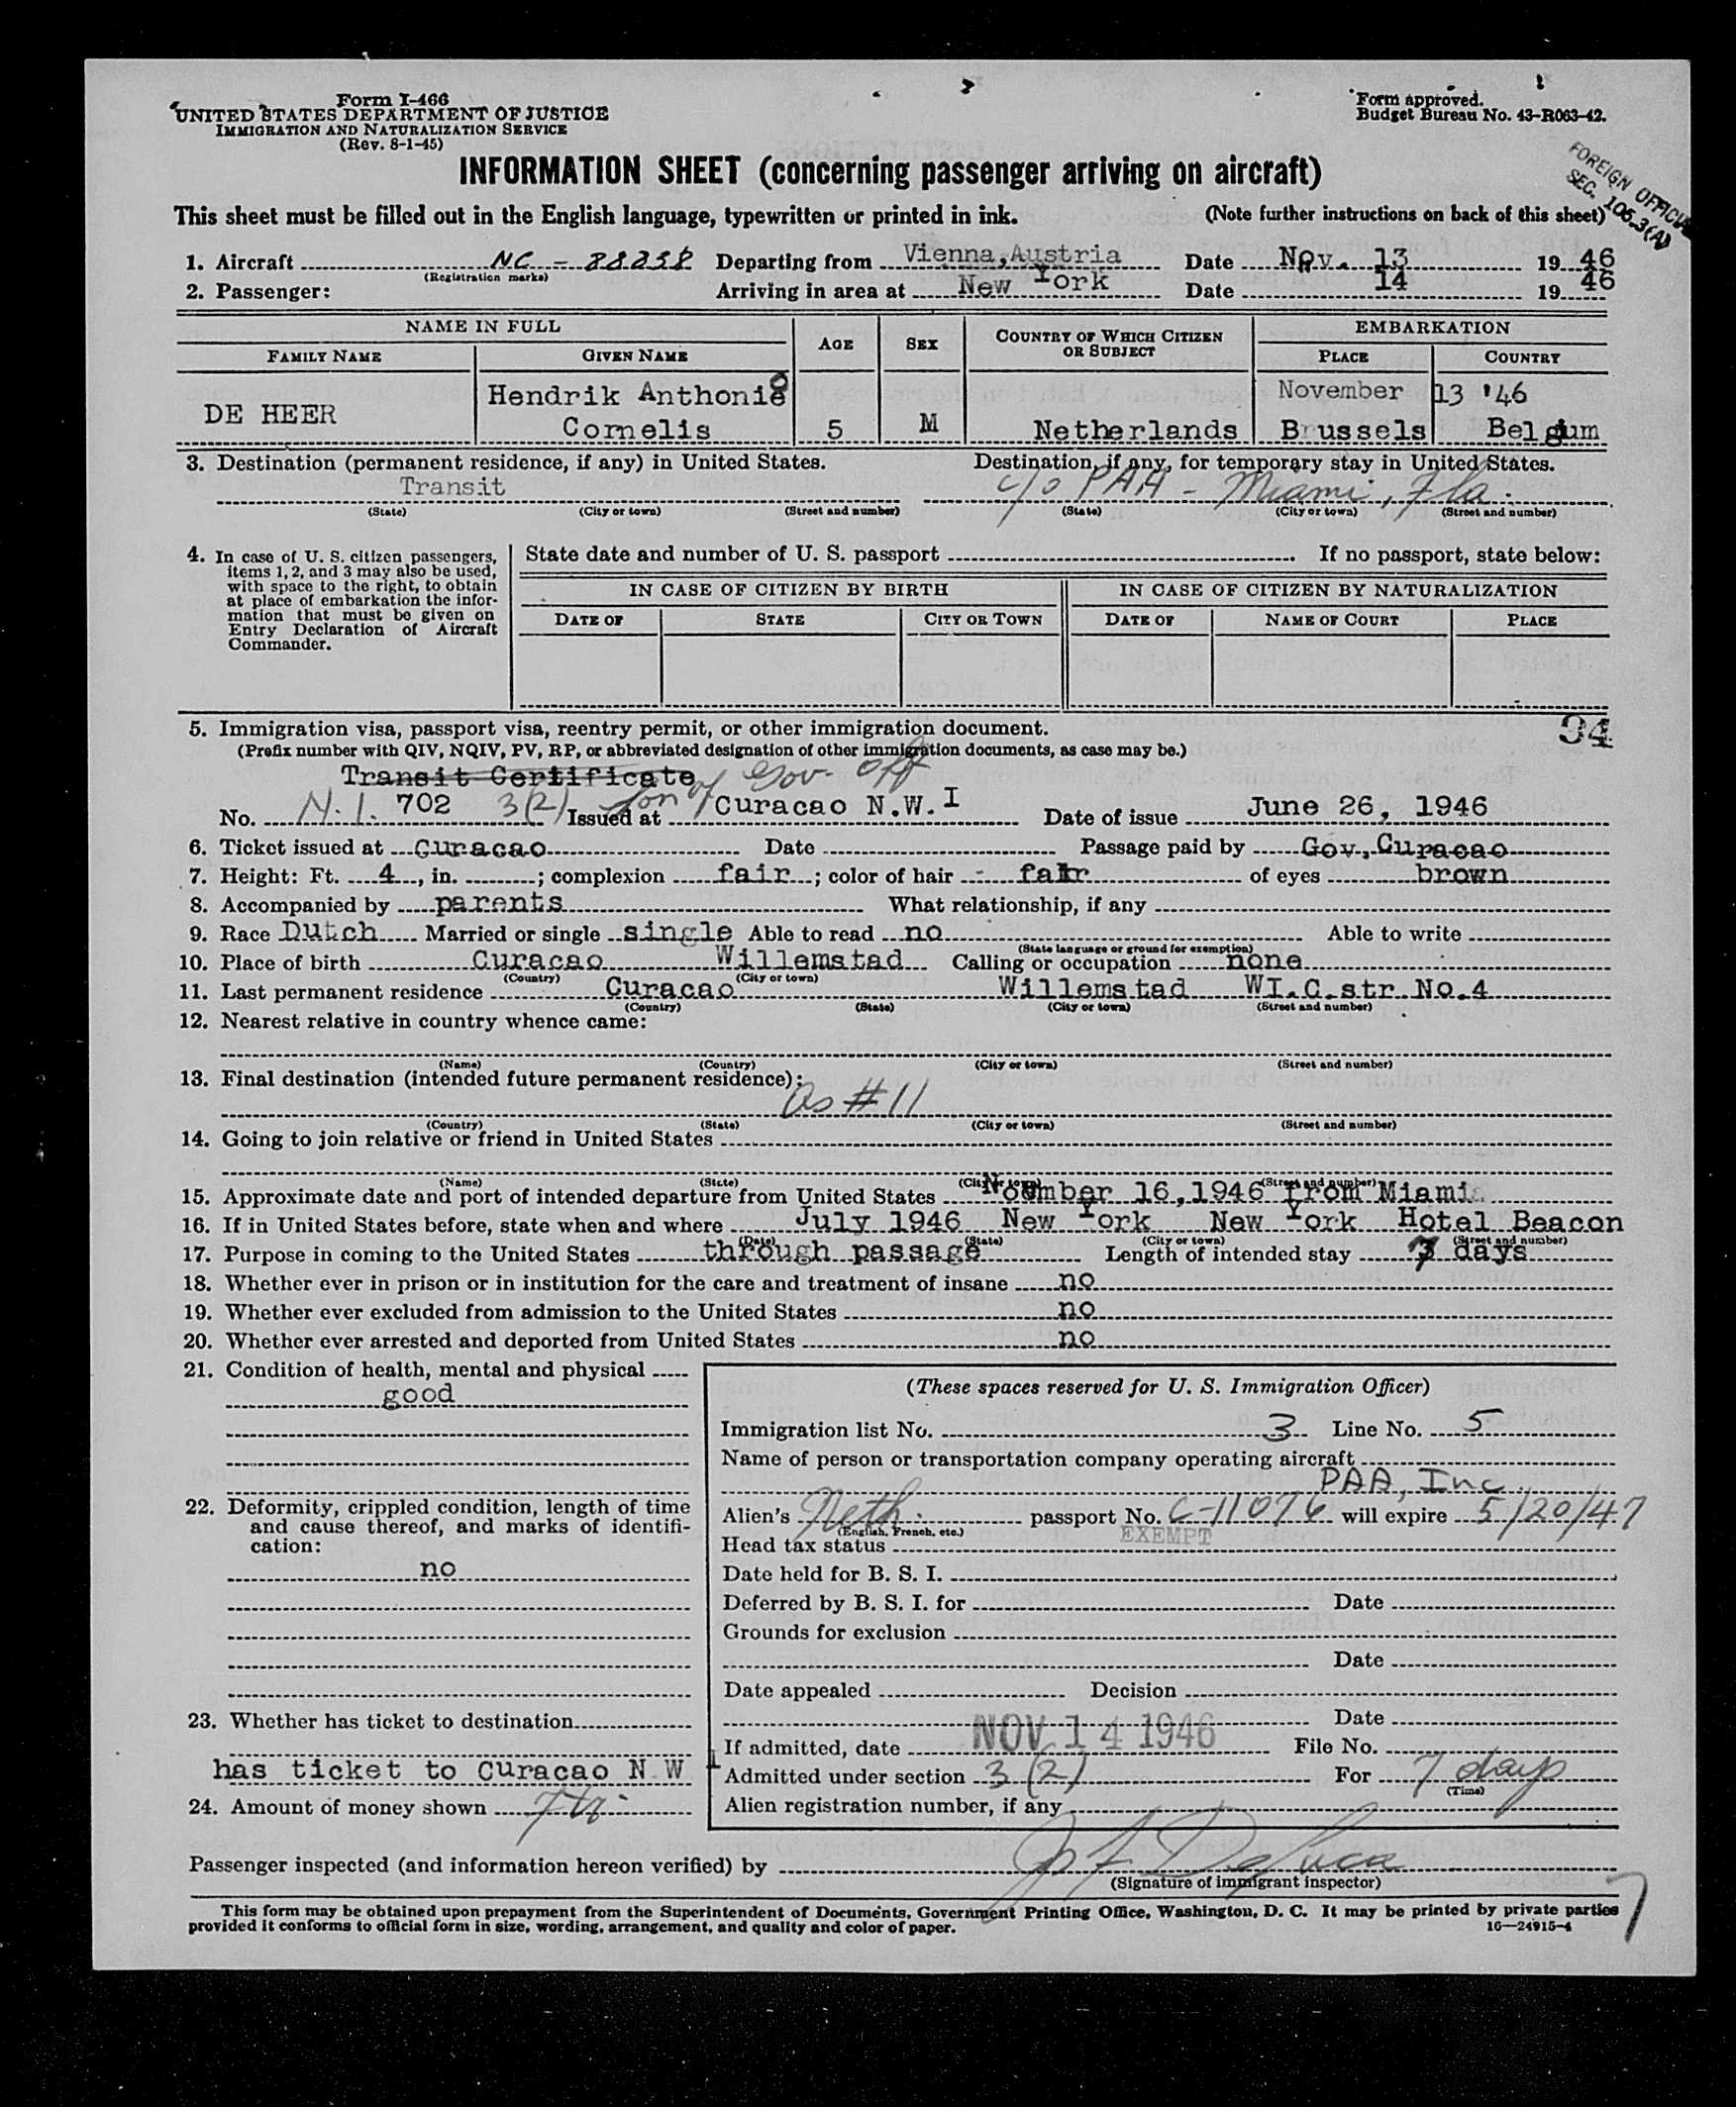 Form I-466
UNITED STATES DEPARTMENT OF JUSTICE
IMMIGRATION AND NATURALIZATION SERVICE
(Rev. 8-1-45)
Form approved.
Budget Bureau No. 43-R063-42.
INFORMATION SHEET (concerning passenger arriving on aircraft)
FOREIGN OFFICIAL
SEC. 105.3(A)
This sheet must be filled out in the English language, typewritten or printed in ink. (Note further instructions on back of this sheet)
1. Aircraft NC - 88258 Departing from Vienna, Austria Date Nov. 13 19 46
(Registration marks)
2. Passenger: Arriving in area at New York Date 14 19 46
NAME IN FULL AGE SEX COUNTRY OF WHICH CITIZEN OR SUBJECT EMBARKATION
FAMILY NAME GIVEN NAME PLACE COUNTRY
Hendrik Anthonie November 13 '46
DE HEER Cornelis 5 M Netherlands Brussels Belgium
3. Destination (permanent residence, if any) in United States. Destination, if any, for temporary stay in United States.
Transit c/o PAA - Miami, Fla.
(State) (City or town) (Street and number) (State) (City or town) (Street and number)
4. In case of U. S. citizen passengers, items 1, 2, and 3 may also be used, with space to the right, to obtain at place of embarkation the information that must be given on Entry Declaration of Aircraft Commander.
State date and number of U. S. passport If no passport, state below:
IN CASE OF CITIZEN BY BIRTH IN CASE OF CITIZEN BY NATURALIZATION
DATE OF STATE CITY OR TOWN DATE OF NAME OF COURT PLACE
5. Immigration visa, passport visa, reentry permit, or other immigration document. 94
(Prefix number with QIV, NQIV, PV, RP, or abbreviated designation of other immigration documents, as case may be.)
Transit Certificate son of Gov. Off
No. N.I. 702 3(2) Issued at Curacao N.W.I Date of issue June 26, 1946
6. Ticket issued at Curacao Date Passage paid by Gov, Curacao
7. Height: Ft. 4, in. ; complexion fair; color of hair fair of eyes brown
8. Accompanied by parents What relationship, if any
9. Race Dutch Married or single single Able to read no Able to write
(State language or ground for exemption)
10. Place of birth Curacao Willemstad Calling or occupation none
(Country) (City or town)
11. Last permanent residence Curacao Willemstad WI.C.str.No.4
(Country) (State) (City or town) (Street and number)
12. Nearest relative in country whence came:
(Name) (Country) (City or town) (Street and number)
13. Final destination (intended future permanent residence):
as #11
(Country) (State) (City or town) (Street and number)
14. Going to join relative or friend in United States
(Name) (State) (City or town) (Street and number)
15. Approximate date and port of intended departure from United States November 16, 1946 from Miami
16. If in United States before, state when and where July 1946 New York New York Hotel Beacon
(Date) (State) (City or town) (Street and number)
17. Purpose in coming to the United States through passage Length of intended stay 7 days
18. Whether ever in prison or in institution for the care and treatment of insane no
19. Whether ever excluded from admission to the United States no
20. Whether ever arrested and deported from United States no
21. Condition of health, mental and physical
good
22. Deformity, crippled condition, length of time and cause thereof, and marks of identification:
no
23. Whether has ticket to destination
has ticket to Curacao N W I
24. Amount of money shown
(These spaces reserved for U. S. Immigration Officer)
Immigration list No. 3 Line No. 5
Name of person or transportation company operating aircraft
PAA, Inc.
Alien's Neth. passport No. C-11076 will expire 5/20/47
(English, French, etc.)
Head tax status EXEMPT
Date held for B. S. I.
Deferred by B. S. I. for Date
Grounds for exclusion
Date
Date appealed Decision
Date
If admitted, date NOV 14 1946 File No.
Admitted under section 3(2) For 7 days
(Time)
Alien registration number, if any
Passenger inspected (and information hereon verified) by
(Signature of immigrant inspector)
7
This form may be obtained upon prepayment from the Superintendent of Documents, Government Printing Office, Washington, D. C. It may be printed by private parties
provided it conforms to official form in size, wording, arrangement, and quality and color of paper. 16—24915-4